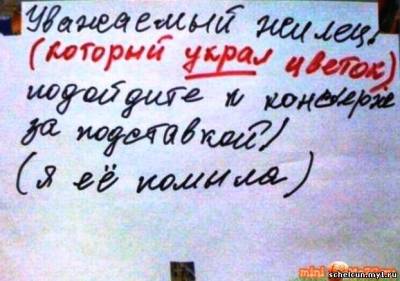 Уважаемый жилец!
(который украл цветок)
подойдите к консержке
за подставкой!
(я её помыла)
mini
schelcun.my1.ru